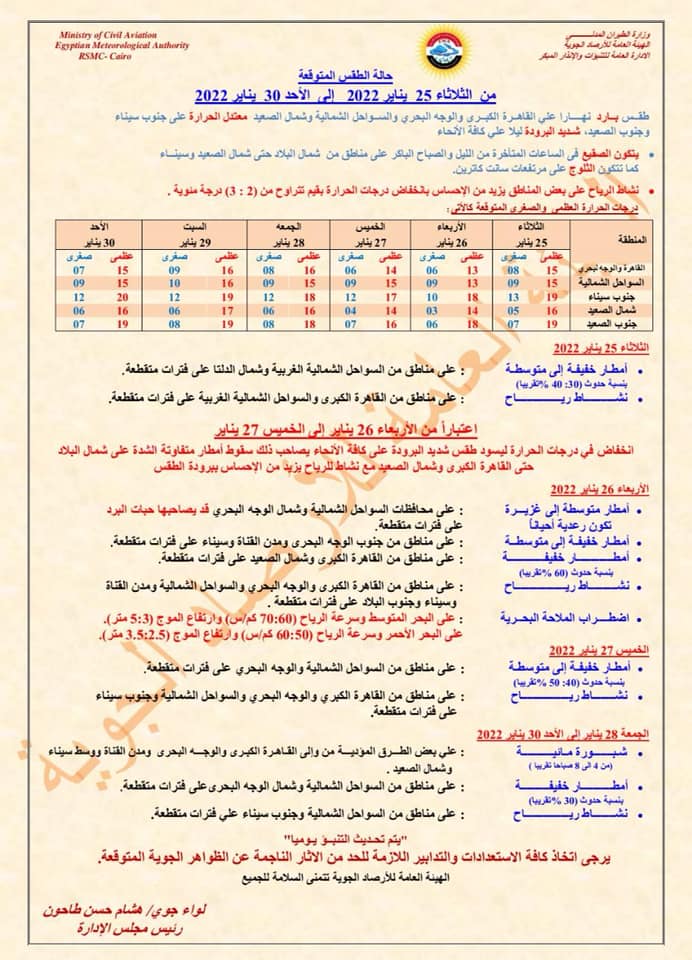 Ministry of Civil Aviation
Egyptian Meteorological Authority
RSMC- Cairo
وزارة الطيران المدنـــــي
الهيئة العامة للأرصاد الجوية
الادارة العامة للتنبؤات والإنذار المبكر
حالة الطقس المتوقعة
من الثلاثاء 25 يناير 2022 إلى الأحد 30 يناير 2022
طقـس بـارد نهـارا علي القاهرة الكبرى والوجه البحري والسـواحل الشمالية وشمال الصعيد معتدل الحرارة على جنوب سيناء
وجنوب الصعيد، شـديد البرودة ليلا علي كافة الأنحاء
• يتكون الصقيع فى الساعات المتأخرة من الليل والصباح الباكر على مناطق من شمال البلاد حتى شمال الصعيد وسيناء
كما تتكون الثلوج على مرتفعات سانت كاترين.
• نشاط الرياح على بعض المناطق يزيد من الإحساس بانخفاض درجات الحرارة بقيم تتراوح من (2 : 3) درجة مئوية .
درجات الحرارة العظمي والصغرى المتوقعة كالأتى:
المنطقة الثلاثاء الأربعاء الخميس الجمعه السبت الأحد
25 يناير 26 يناير 27 يناير 28 يناير 29 يناير 30 يناير
عظمى صغرى عظمى صغرى عظمى صغرى عظمى صغرى عظمى صغرى عظمى صغرى
القاهرة والوجه لبحري 15 08 13 06 14 06 16 08 16 09 15 07
السواحل الشمالية 15 09 13 09 15 09 15 09 16 10 15 09
جنوب سيناء 19 13 18 10 17 12 18 12 19 12 20 12
شمال الصعيد 16 05 14 03 14 04 16 06 17 06 16 06
جنوب الصعيد 19 07 18 06 16 07 18 08 19 08 19 07
الثلاثاء 25 يناير 2022
• أمطـار خفيفـة إلى متوسطـة : على مناطق من السواحل الشمالية الغربية وشمال الدلتا على فترات متقطعة.
بنسبة حدوث (30: 40 %تقريبا)
• نشــــاط ريـــــاح : على مناطق من القاهرة الكبرى والسواحل الشمالية الغربية على فترات متقطعة.
اعتباراً من الأربعاء 26 يناير إلى الخميس 27 يناير
انخفاض في درجات الحرارة ليسود طقس شديد البرودة على كافة الأنحاء يصاحب ذلك سقوط أمطار متفاوتة الشدة على شمال البلاد
حتى القاهرة الكبرى وشمال الصعيد مع نشاط للرياح يزيد من الإحساس ببرودة الطقس
الأربعاء 26 يناير 2022
• أمطار متوسطة إلى غزيــرة : على محافظات السواحل الشمالية وشمال الوجه البحري قد يصاحبها حبات البرد
تكون رعدية أحياناً على فترات متقطعة.
• أمطار خفيفـة إلى متوسطـة : على مناطق من جنوب الوجه البحرى ومدن القناة وسيناء على فترات متقطعة.
• أمطــــــــار خفيفــــــــة : على مناطق من القاهرة الكبرى وشمال الصعيد على فترات متقطعة.
بنسبة حدوث (60 %تقريبا)
• نشــــاط ريـــــاح : على مناطق من القاهرة الكبرى والوجه البحري والسواحل الشمالية ومدن القناة
وسيناء وجنوب البلاد على فترات متقطعة .
• اضطـراب الملاحة البحرية : على البحر المتوسط وسرعة الرياح (70:60 كم/س) وارتفاع الموج (5:3 متر).
على البحر الأحمر وسرعة الرياح (60:50 كم/س) وارتفاع الموج (3.5:2.5 متر).
الخميس 27 يناير 2022
• أمطار خفيفـة إلى متوسطـة : على مناطق من السواحل الشمالية والوجه البحري على فترات متقطعة.
بنسبة حدوث (40: 50 %تقريبا)
• نشــــاط ريـــــاح : على مناطق من القاهرة الكبري والوجه البحري والسواحل الشمالية وجنوب سيناء
على فترات متقطعة.
الجمعة 28 يناير إلى الأحد 30 يناير 2022
• شبــــورة مائيـــــــة : علي بعض الطرق المؤدية من وإلى القاهرة الكبرى والوجـه البحرى ومدن القناة ووسط سيناء
(من 4 الى 8 صباحا تقريبا ) وشمال الصعيد .
• أمطـــــــار خفيفــــــة : على مناطق من السواحل الشمالية وشمال الوجه البحرى على فترات متقطعة.
بنسبة حدوث (30 %تقريبا)
• نشــــاط ريـــــاح : على مناطق من السواحل الشمالية وجنوب سيناء علي فترات متقطعة.
"يتم تحديث التنبؤ يوميا"
يرجى اتخاذ كافة الاستعدادات والتدابير اللازمة للحد من الاثار الناجمة عن الظواهر الجوية المتوقعة.
الهيئة العامة للأرصاد الجوية تتمنى السلامة للجميع
لواء جوي/ هشام حسن طاحون
رئيس مجلس الإدارة
الهيئة العامة للأرصاد الجوية